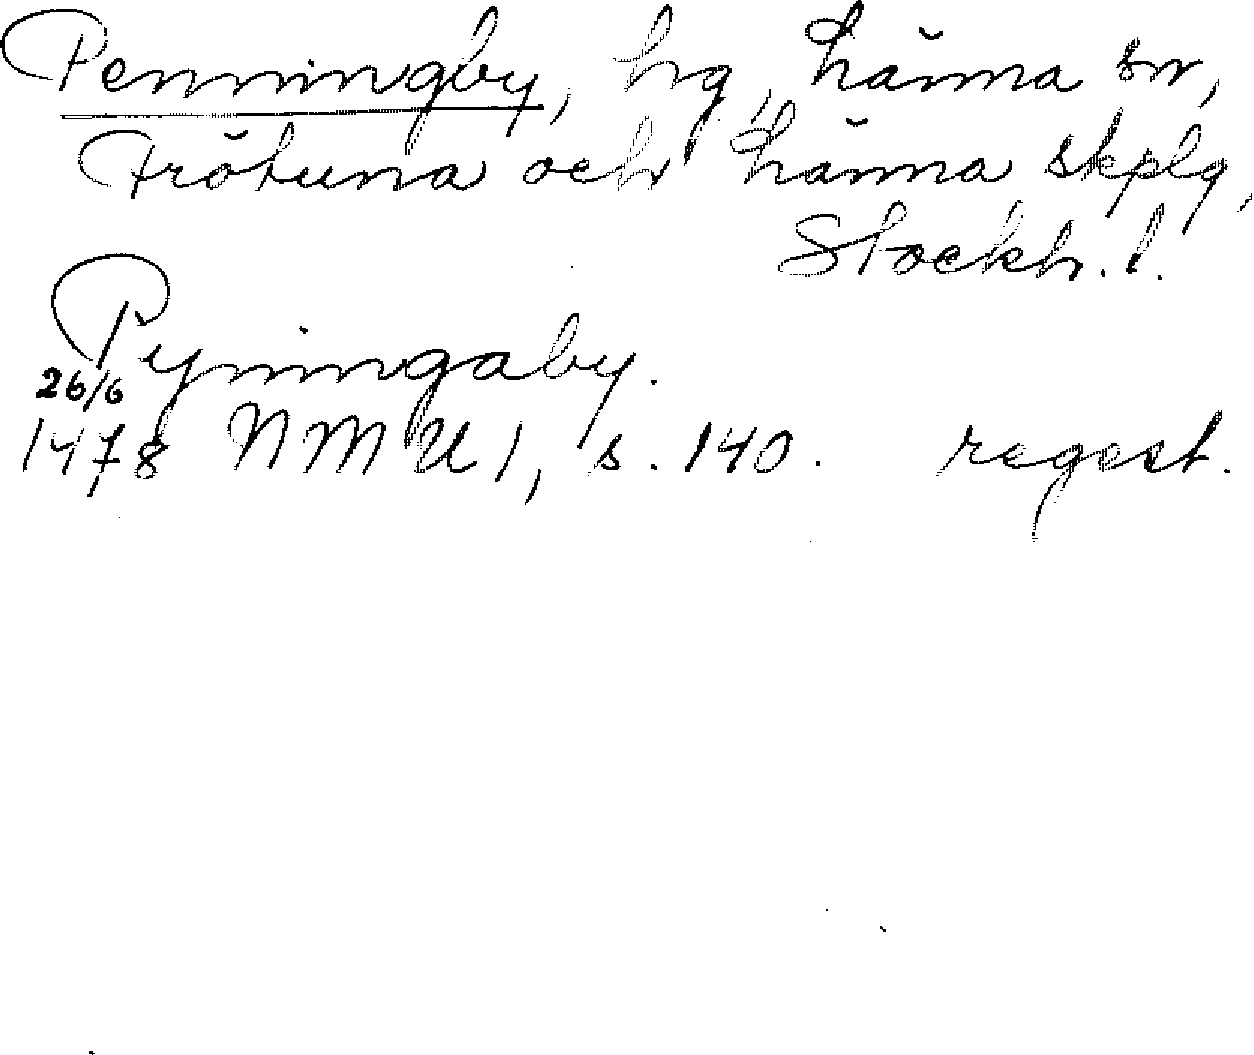 Penningby, hg, Länna sn,
Frötuna och Länna skplg,
Stockh. l.
Pyningaby.
26/6
1478 NMU 1, s. 140. regest.